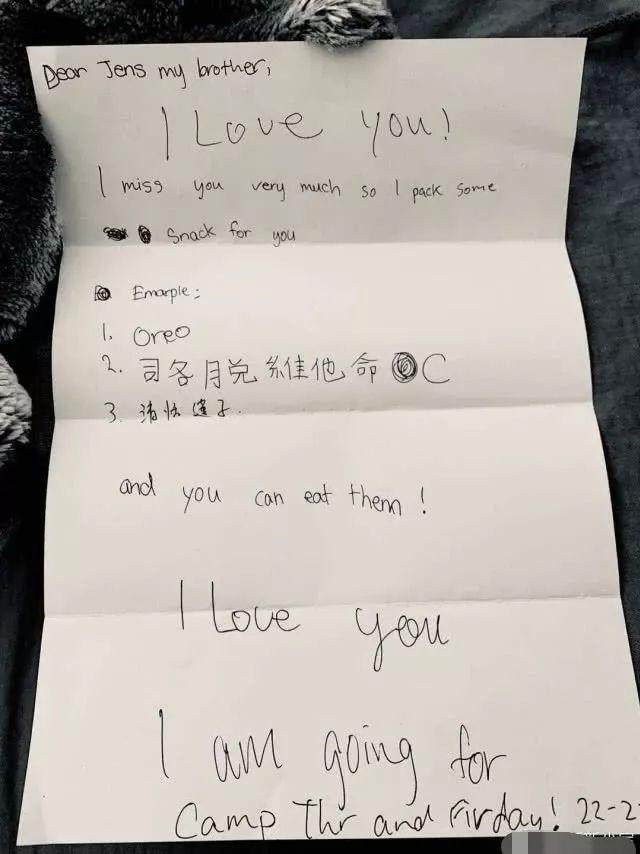 Dear Jens my brother,
I Love you!
I miss you very much so I pack some
Snack for you
Emarple:
1. Oreo
2. 司各月兑維他命 C
3.
and you can eat them!
I Love you
I am going for
Camp Thr and Firday! 22-2